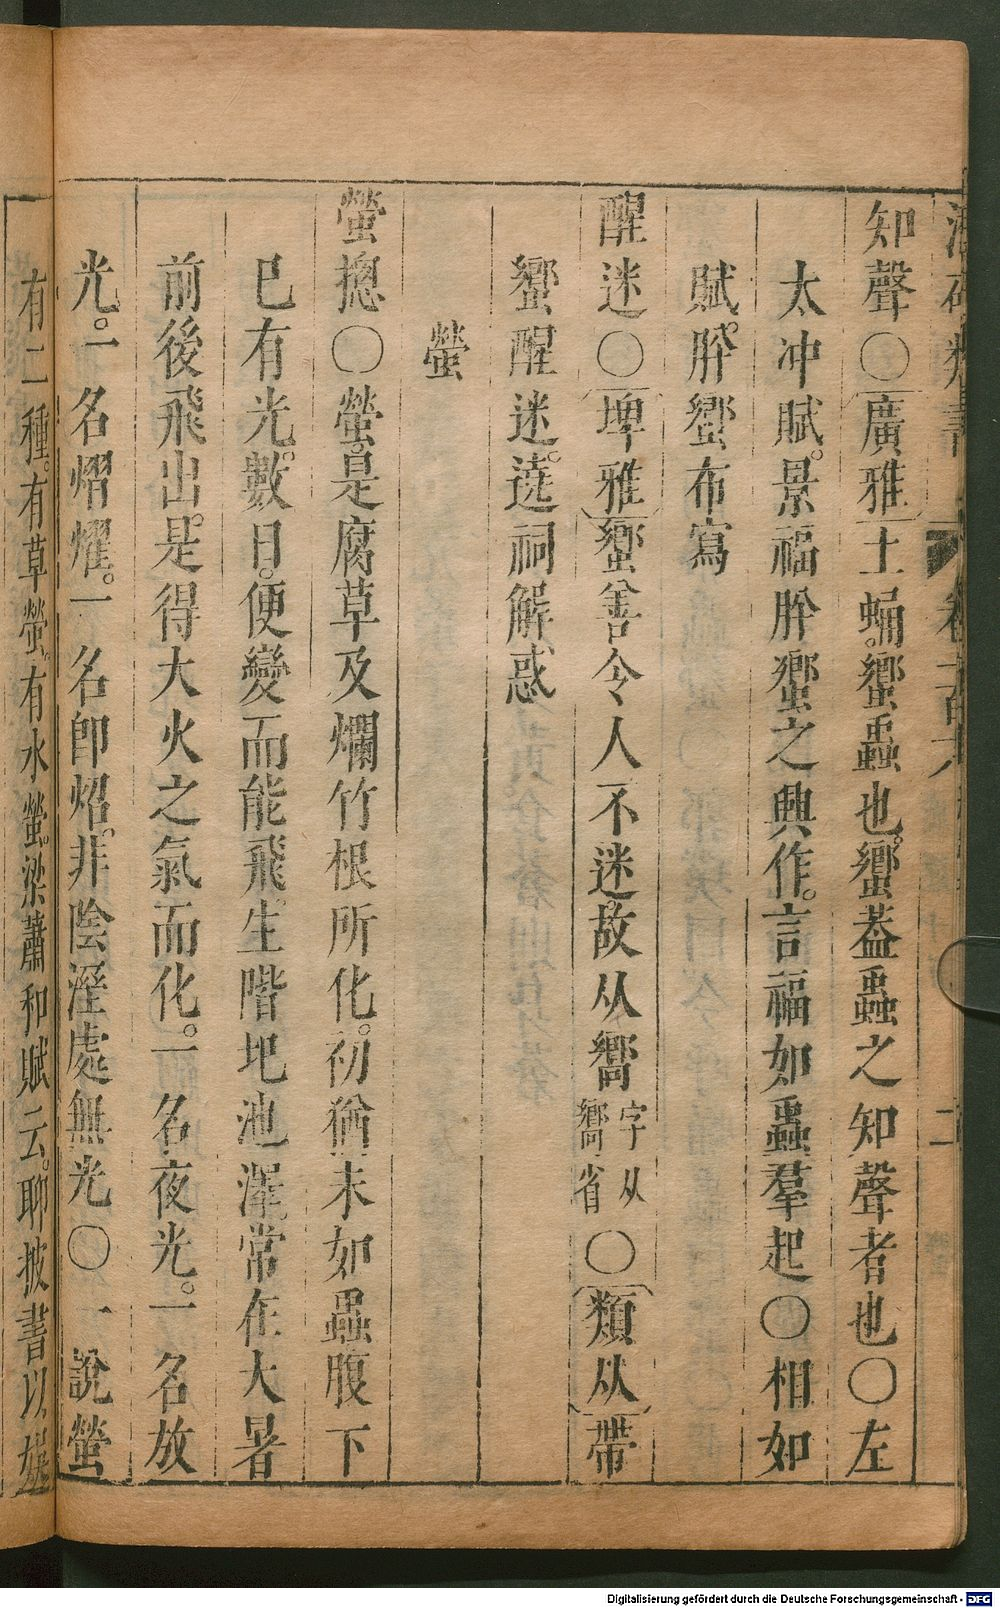 知聲〇廣雅土蛹。蠁蟲也。蠁葢蟲之知聲者也〇左
太冲賦。景福肹蠁之興作。言福如蟲羣起〇相如
賦。肹蠁布寫
醒迷〇埤雅蠁善令人不迷。故从嚮字从嚮省〇類从帶
蠁醒迷。遶祠解惑
螢
螢揔〇螢。是腐草及爛竹根所化。初猶未如蟲腹下
巳有光。數日。便變而能飛。生階圯池澤。常在大暑
前後飛出。是得大火之氣而化。一名夜光。一名放
光。一名熠燿。一名卽炤。非陰溼處無光〇。一說螢
有二種。有草螢。有水螢。梁蕭和賦云。聊披書以娛
二
Digitalisierung gefördert durch die Deutsche Forschungsgemeinschaft - DFG